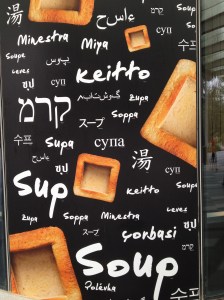 湯
Minestra
Miya
Soupe
Leves
суп
Keitto
ซุป
קרמ
Zupa
Soppa
수프
スープ
Supa
супа
суп
湯
ซุป
Sup
Keitto
Soupe
Leves
Zupa
Soppa
Minestra
수프
スープ
Çorbasi
суп
Soup
Polévka
수프